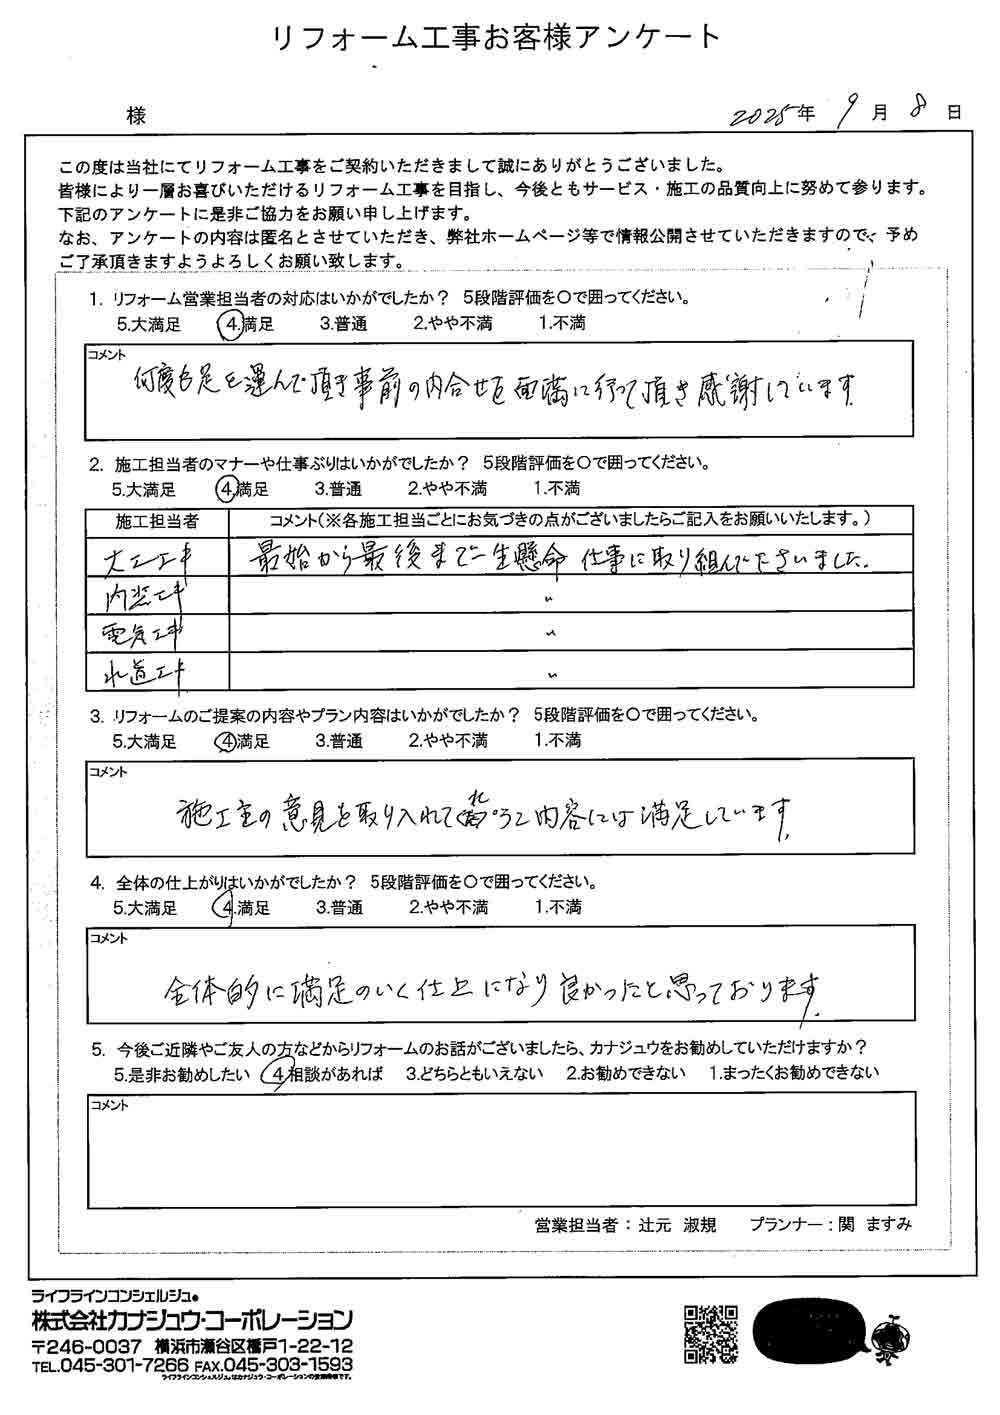 リフォーム工事お客様アンケート
様 2025年 9月 8日
この度は当社にてリフォーム工事をご契約いただきまして誠にありがとうございました。
皆様により一層お喜びいただけるリフォーム工事を目指し、今後ともサービス・施工の品質向上に努めて参ります。
下記のアンケートに是非ご協力をお願い申し上げます。
なお、アンケートの内容は匿名とさせていただき、弊社ホームページ等で情報公開させていただきますので、予め
ご了承頂きますようよろしくお願い致します。
1. リフォーム営業担当者の対応はいかがでしたか? 5段階評価を○で囲ってください。
5.大満足 4.満足 3.普通 2.やや不満 1.不満
コメント
何度も足を運んで頂き事前の内合せを面満に行って頂き感謝しています
2. 施工担当者のマナーや仕事ぶりはいかがでしたか? 5段階評価を○で囲ってください。
5.大満足 4.満足 3.普通 2.やや不満 1.不満
施工担当者 コメント(※各施工担当ごとにお気づきの点がございましたらご記入をお願いいたします。)
大工工事 最始から最後まで一生懸命 仕事に取り組んで下さいました。
内装工事 〃
電気工事 〃
水道工事 〃
3. リフォームのご提案の内容やプラン内容はいかがでしたか? 5段階評価を○で囲ってください。
5.大満足 4.満足 3.普通 2.やや不満 1.不満
コメント
施工主の意見を取り入れてくれ 内容には満足しています。
4. 全体の仕上がりはいかがでしたか? 5段階評価を○で囲ってください。
5.大満足 4.満足 3.普通 2.やや不満 1.不満
コメント
全体的に満足のいく仕上になり良かったと思っております。
5. 今後ご近隣やご友人の方などからリフォームのお話がございましたら、カナジュウをお勧めしていただけますか?
5.是非お勧めしたい 4.相談があれば 3.どちらともいえない 2.お勧めできない 1.まったくお勧めできない
コメント
営業担当者：辻元 淑規 プランナー：関 ますみ
ライフラインコンシェルジュ®
株式会社カナジュウ・コーポレーション
〒246-0037 横浜市瀬谷区橋戸1-22-12
TEL.045-301-7266 FAX.045-303-1593
ライフラインコンシェルジュ®はカナジュウ・コーポレーションの登録商標です。